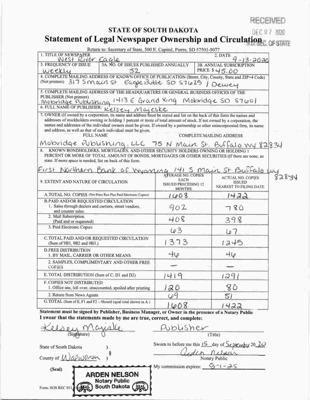 RECEIVED
DEC 07 2020
S.D. SEC. OF STATE
STATE OF SOUTH DAKOTA
Statement of Legal Newspaper Ownership and Circulation
Return to: Secretary of State, 500 E. Capitol, Pierre, SD 57501-5077
1. TITLE OF NEWSPAPER
West River Eagle
2. DATE
9-13-2020
3. FREQUENCY OF ISSUE
weekly
3A. NO. OF ISSUES PUBLISHED ANNUALLY
52
3B. ANNUAL SUBSCRIPTION PRICE $ 45.00
4. COMPLETE MAILING ADDRESS OF KNOWN OFFICE OF PUBLICATION (Street, City, County, State and ZIP+4 Code)
(Not printers) 317 S main St Eagle Butte SD 57625 / Dewey
5. COMPLETE MAILING ADDRESS OF THE HEADQUARTERS OR GENERAL BUSINESS OFFICES OF THE
PUBLISHER (Not printers)
Mobridge Publishing 1413 E Grand Xing Mobridge SD 57601
6. FULL NAME OF PUBLISHER: Kelsey Majeske
7. OWNER (If owned by a corporation, its name and address must be stated and list on the back of this form the names and
addresses of stockholders owning or holding 1 percent or more of total amount of stock. If not owned by a corporation, the
names and addresses of the individual owners must be given. If owned by a partnership or other unincorporated firm, its name
and address, as well as that of each individual must be given.
FULL NAME COMPLETE MAILING ADDRESS
Mobridge Publishing, LLC 75 N Main St. Buffalo WY 82834
8. KNOWN BONDHOLDERS, MORTGAGEES, AND OTHER SECURITY HOLDERS OWNING OR HOLDING 1
PERCENT OR MORE OF TOTAL AMOUNT OF BONDS, MORTGAGES OR OTHER SECURITIES (If there are none, so
state. If more space is needed, list on back of this form.
First Northern Bank of Wyoming 141 S Main St Buffalo WY
82834
9. EXTENT AND NATURE OF CIRCULATION
AVERAGE NO. COPIES
EACH
ISSUED PRECEDING 12
MONTHS
ACTUAL NO. COPIES
ISSUED
NEAREST TO FILING DATE
A. TOTAL NO. COPIES 1608 1422
B. PAID AND/OR REQUESTED CIRCULATION
1. Sales through dealers and carriers, street vendors,
and counter sales. 902 780
2. Mail Subscription
(Paid and or requested) 408 398
3. Paid Electronic Copies 63 67
C. TOTAL PAID AND/OR REQUESTED CIRCULATION
(Sum of 9B1, 9B2 and 9B3.) 1373 1245
D. FREE DISTRIBUTION
1. BY MAIL, CARRIER OR OTHER MEANS 46 46
2. SAMPLES, COMPLIMENTARY AND OTHER FREE
COPIES
E. TOTAL DISTRIBUTION (Sum of C, D1 and D2) 1419 1291
F. COPIES NOT DISTRIBUTED
1. Office use, left over, unaccounted, spoiled after printing 120 80
2. Return from News Agents 69 51
G. TOTAL (Sum of E, F1 and F2 – should equal total shown in A.) 1608 1422
Statement must be signed by Publisher, Business Manager, or Owner in the presence of a Notary Public
I swear that the statements made by me are true, correct, and complete:
Kelsey Majeske Publisher
(Signature) (Title)
State of South Dakota )
County of Walworth )
Sworn to before me this 15 day of September, 2020
Arden Nelson
Notary Public
(Seal)
My commission expires: 5-1-25
ARDEN NELSON
Notary Public
South Dakota
SEAL